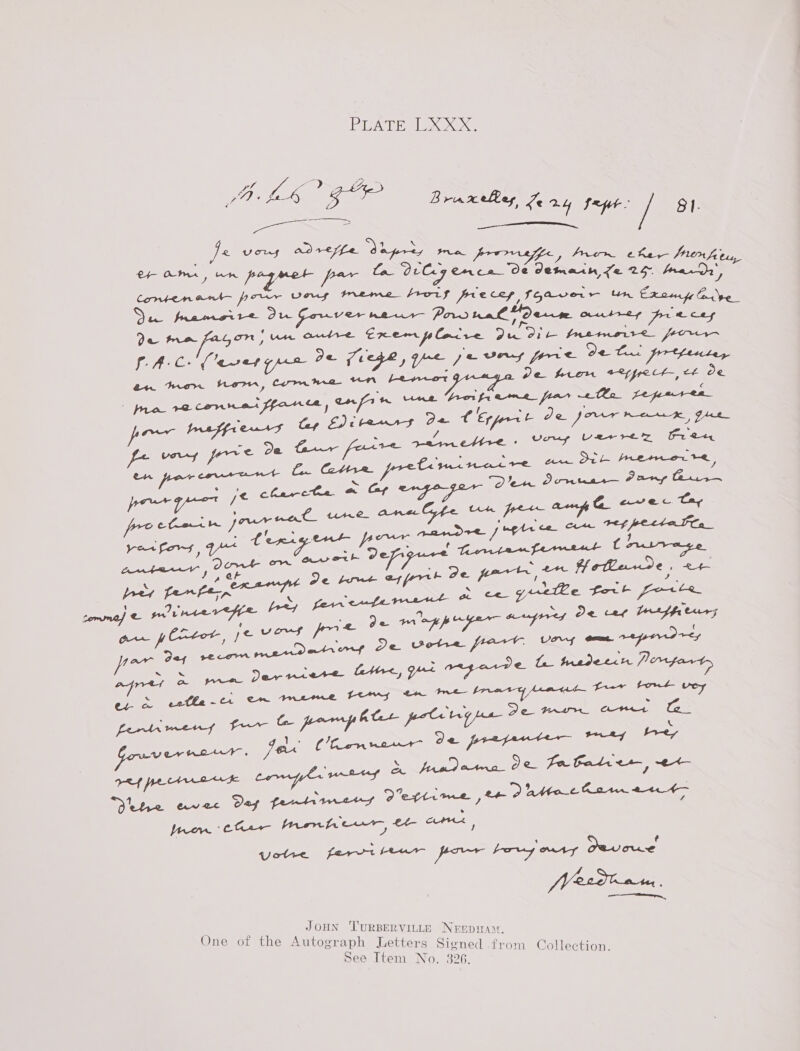 PLATE LXXX.
Bruxelles, Le 24 sept: / 81.
Je vous adresse d'après ma promesse, mon cher Monsieur
et ami, un paquet par la diligence de demain, Le 25. mardi,
contenant pour vous meme trois pieces, sçavoir un Exemplaire
du memoire du Gouverneur Pownal, deux autres pieces
de ma façon; un autre Exemplaire du dit memoire pour
S. A. C. l'evesque de Liege, que je vous prie de lui presenter
en mon nom, comme un temoignage de mon respect, et de
ma reconnaissance, enfin une troisieme par elle separée
pour messieurs les Editeurs de l'Esprit de journaux, que
je vous prie de leur faire remettre. vous verrez bien
en parcourant la lettre preliminaire au dit memoire,
pourquoi je cherche à les engager d'en donner dans leur
prochain journal une analyse un peu ample avec les
raisons, qui l'exigent pour rendre justice au respectable
auteur, dont on avoit defiguré honteusement l'ouvrage
très sensé, et exempt de tout esprit de parti, en Hollande, et
comme je m'interesse très serieusement à ce qu'elle soit faite
au plûtot, je vous prie de m'appuyer auprès de ces messieurs
par des recommendations de votre part. vous repondrés
après à ma derniere lettre, qui regarde le medecin
et à celle-ci en meme tems en me marquant sur tout vos
sentimens sur le pamphlet politique de mon ami le
Gouverneur. J'ai l'honneur de presenter mes très
respectueux complimens à madame de Sabatier, et
d'etre avec des sentimens d'estime, et d'attachement,
mon cher monsieur, et ami,
votre serviteur pour toujours devoué
Needham.
JOHN TURBERVILLE NEEDHAM.
One of the Autograph Letters Signed from Collection.
See Item No. 326.